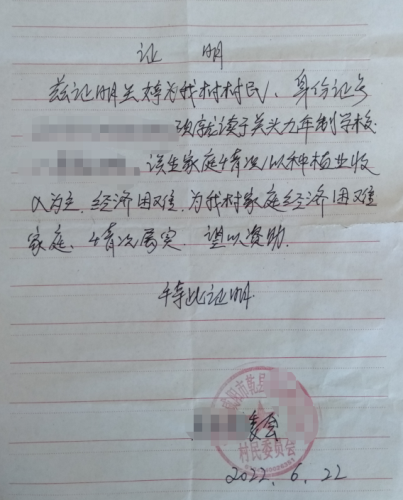 证 明
兹证明吴婷为我村村民、身份证号
现就读于关头九年制学校
该生家庭情况以种植业收
入为主.经济困难.为我村家庭经济困难
家庭、情况属实 望以资助.
特此证明
咸阳市乾县
委会
村民委员会
2022.6.22